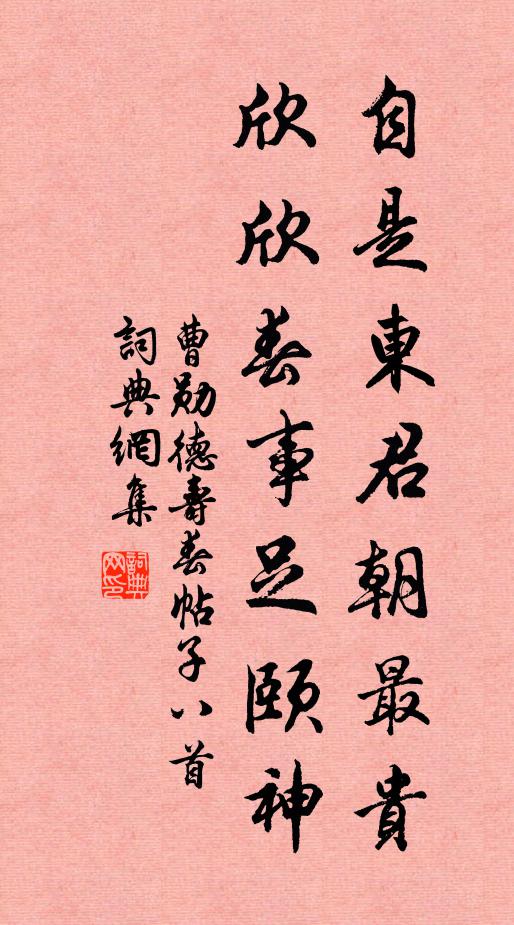 自是東君朝最貴
欣欣春事足頤神
曹勛德壽春帖子八首
詞典網集
詞典網印